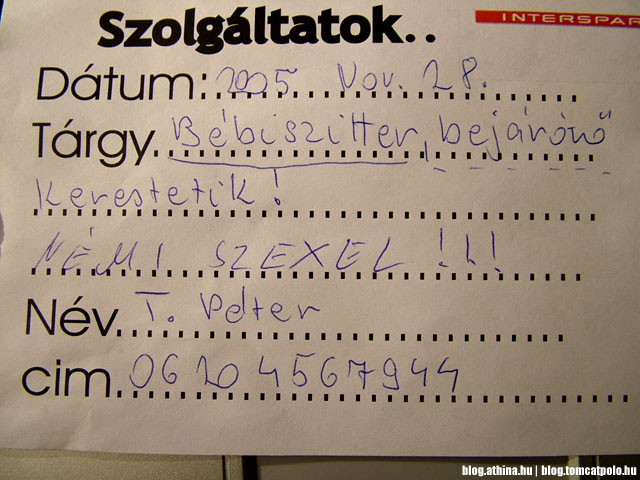 INTERSPAR
Szolgáltatok..
Dátum: 2005 Nov. 28.
Tárgy. Bébiszitter, bejárónő
kerestetik!
NÉMI SZEXEL !!!
Név. T. Péter
cim. 06 20 4567944
blog.athina.hu | blog.tomcatpolo.hu